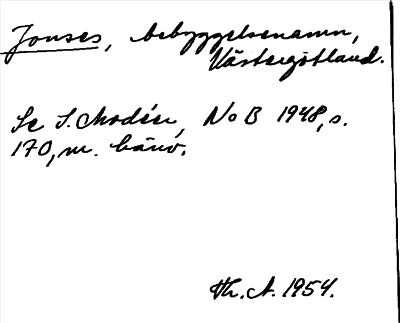 Jonses, bebyggelsenamn,
Västergötland.
Se I. Modéer, NoB 1948, s.
170, m. hänv.
Th. A. 1954.